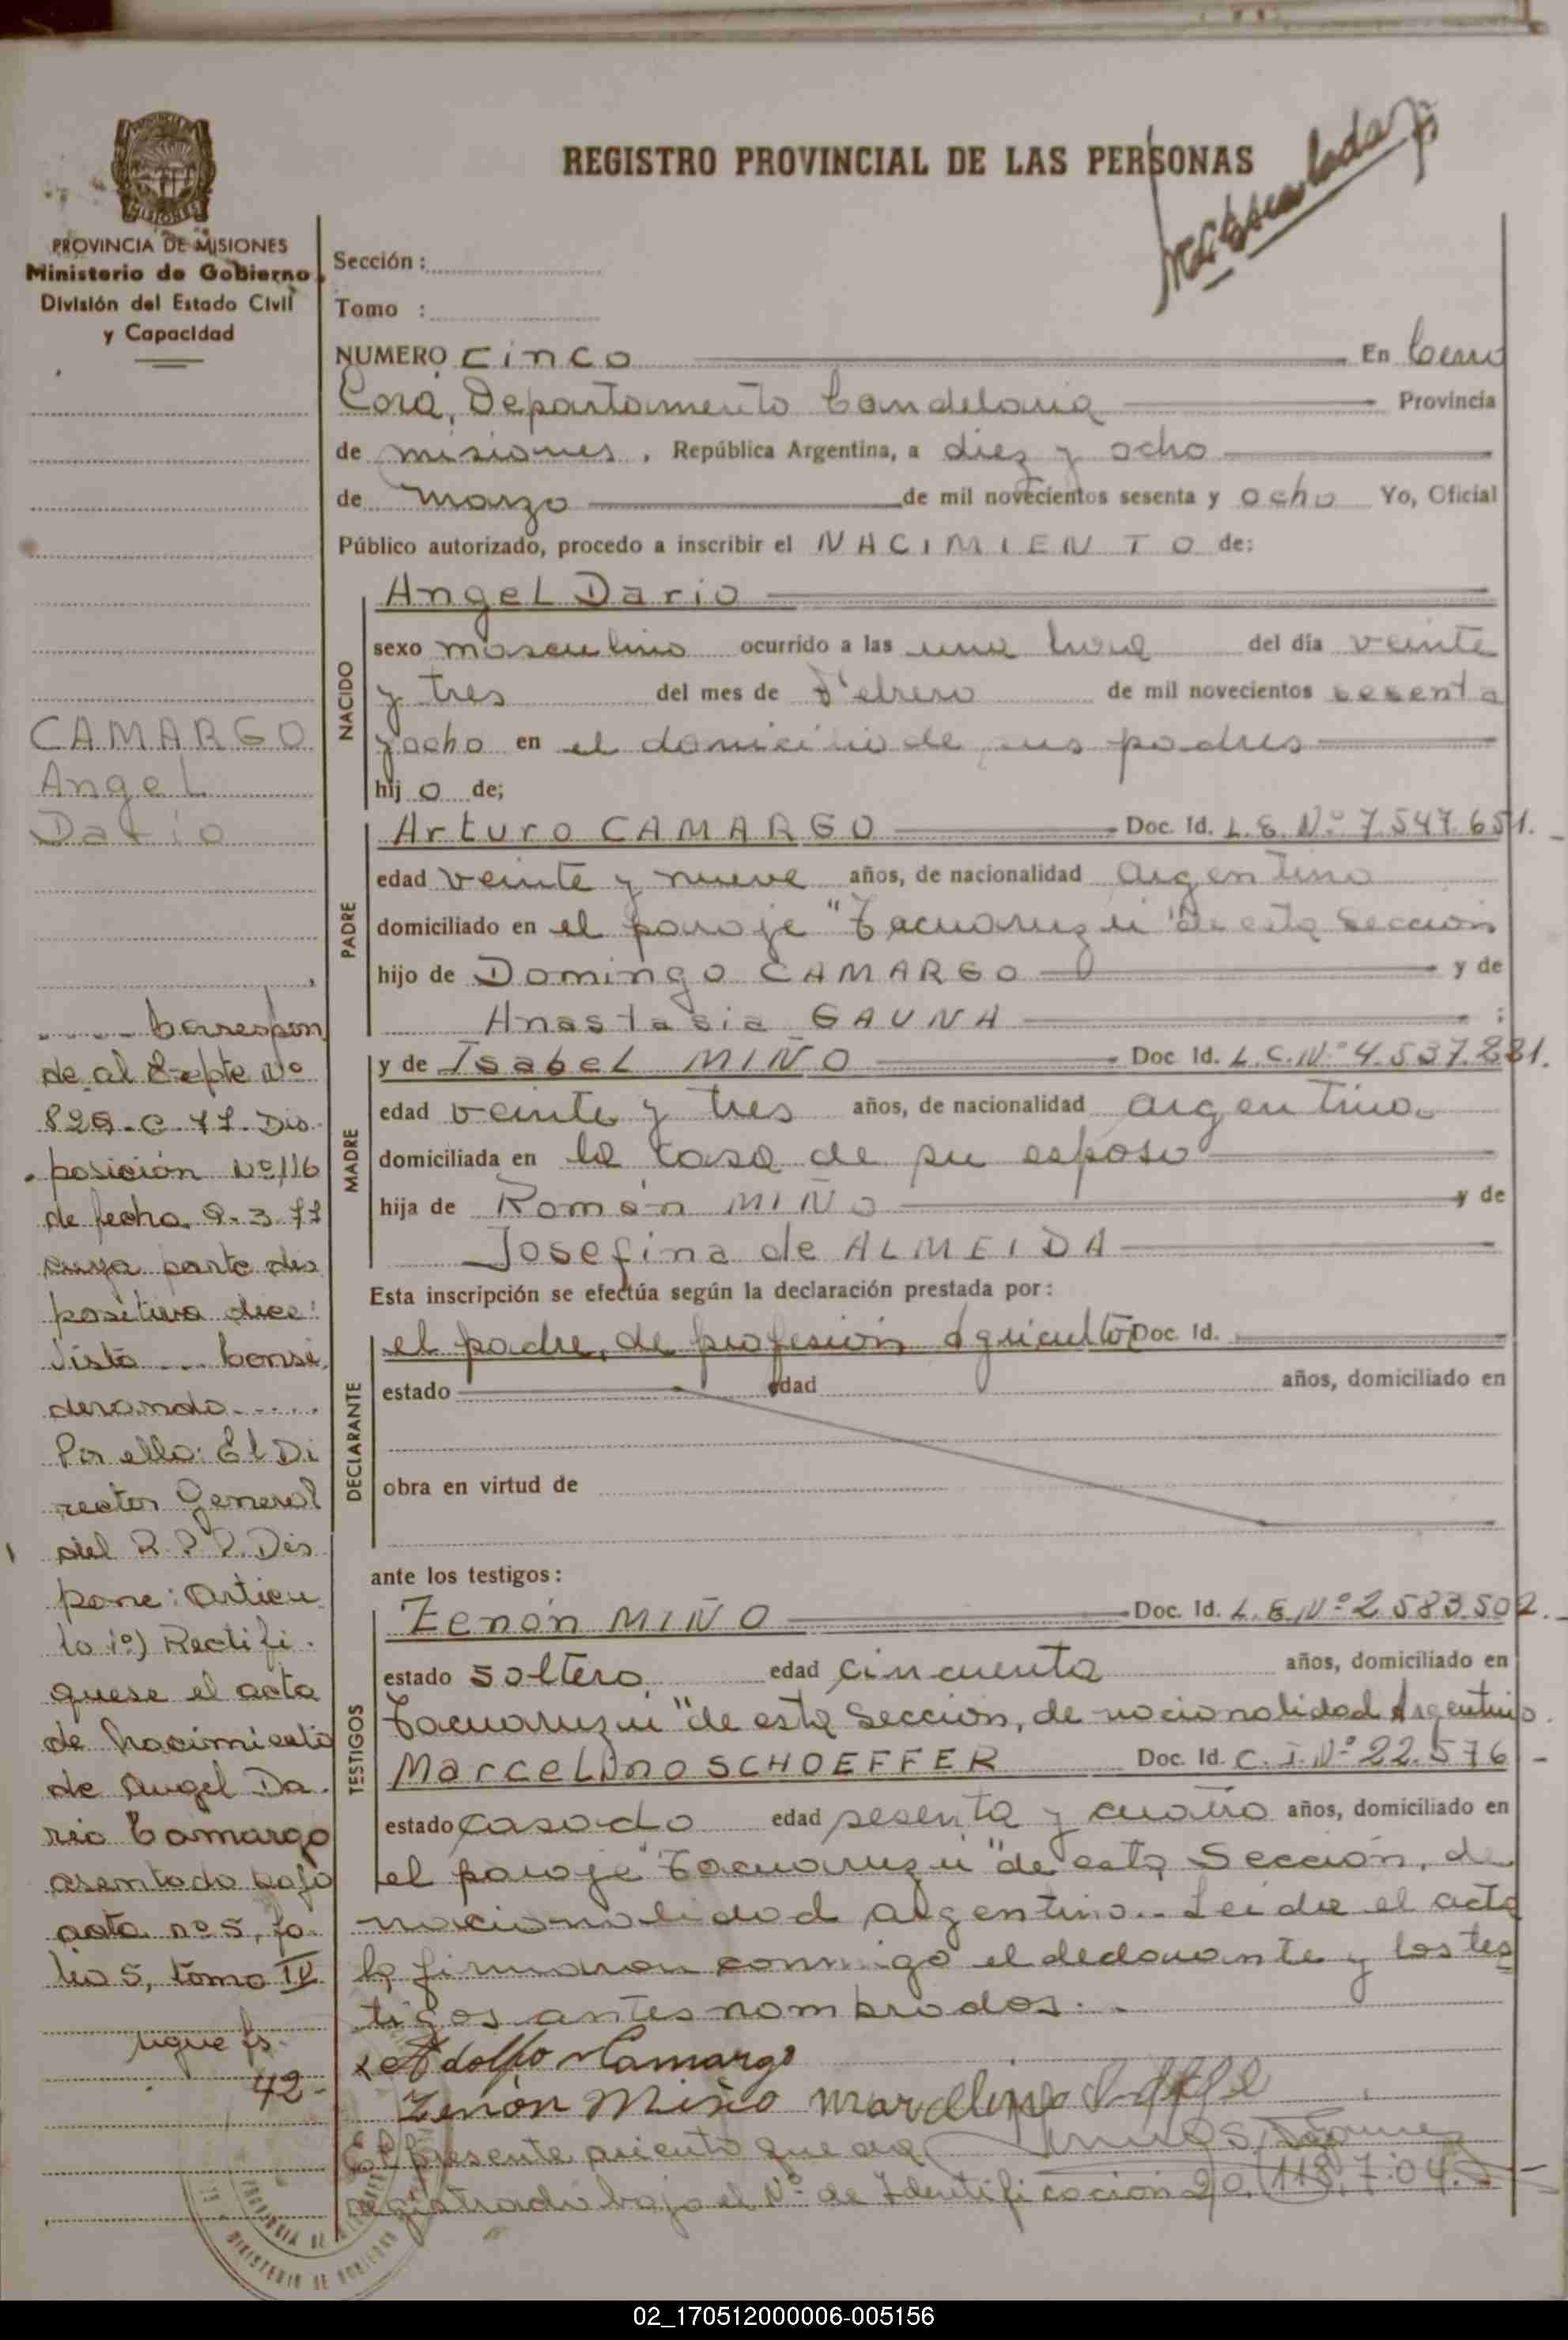 REGISTRO PROVINCIAL DE LAS PERSONAS
PROVINCIA DE MISIONES
Ministerio de Gobierno
División del Estado Civil
y Capacidad
Sección :
Tomo :
NUMERO cinco En Cerro
Corá, Departamento Candelaria Provincia
de misiones, República Argentina, a diez y ocho
de marzo de mil novecientos sesenta y ocho Yo, Oficial
Público autorizado, procedo a inscribir el NACIMIENTO de:
NACIDO
Angel Dario
sexo masculino ocurrido a las una hora del día veinte
y tres del mes de Febrero de mil novecientos sesenta
y ocho en el domicilio de sus padres
hij o de;
PADRE
Arturo CAMARGO Doc. Id. L.E. Nº 7.547.651.
edad veinte y nueve años, de nacionalidad argentino
domiciliado en el paraje "Tacuaruzú" de esta Sección
hijo de Domingo CAMARGO y de
Anastasia GAUNA ;
MADRE
y de Isabel MIÑO Doc. Id. L.C. Nº 4.537.881.
edad veinte y tres años, de nacionalidad argentina
domiciliada en la casa de su esposo
hija de Román MIÑO y de
Josefina de ALMEIDA
Esta inscripción se efectúa según la declaración prestada por:
DECLARANTE
el padre, de profesión Agricultor Doc. Id.
estado edad años, domiciliado en
obra en virtud de
ante los testigos:
TESTIGOS
Zenón MIÑO Doc. Id. L.E. Nº 2.583.502.
estado soltero edad cincuenta años, domiciliado en
Tacuaruzú "de esta Sección, de nacionalidad Argentino.
Marcelino SCHOEFFER Doc. Id. C.I. Nº 22.576
estado casado edad sesenta y cuatro años, domiciliado en
el paraje "Tacuaruzú" de esta Sección, de
nacionalidad argentino.- Leida el acta
la firmaron conmigo el declarante y los tes
tigos antes nombrados.-
Adolfo Camargo
Zenón Miño Marcelino
El presente asiento queda
registrado bajo el Nº de Identificación 20.118.704.
CAMARGO
Angel
Dario
Correspon
de al Expte Nº
829-C-77. Dis
posición Nº 116
de fecha 9.3.77
cuya parte dis
positiva dice:
Visto ... Consi
derando.....
Por ello: El Di
rector General
del R.P.P. Dis
pone: Articu
lo 1º) Rectifi
quese el acta
de nacimiento
de Angel Da
rio Camargo
asentado bajo
acta nº 5, fo
lio 5, tomo IV
sigue fs.
42-
02_170512000006-005156